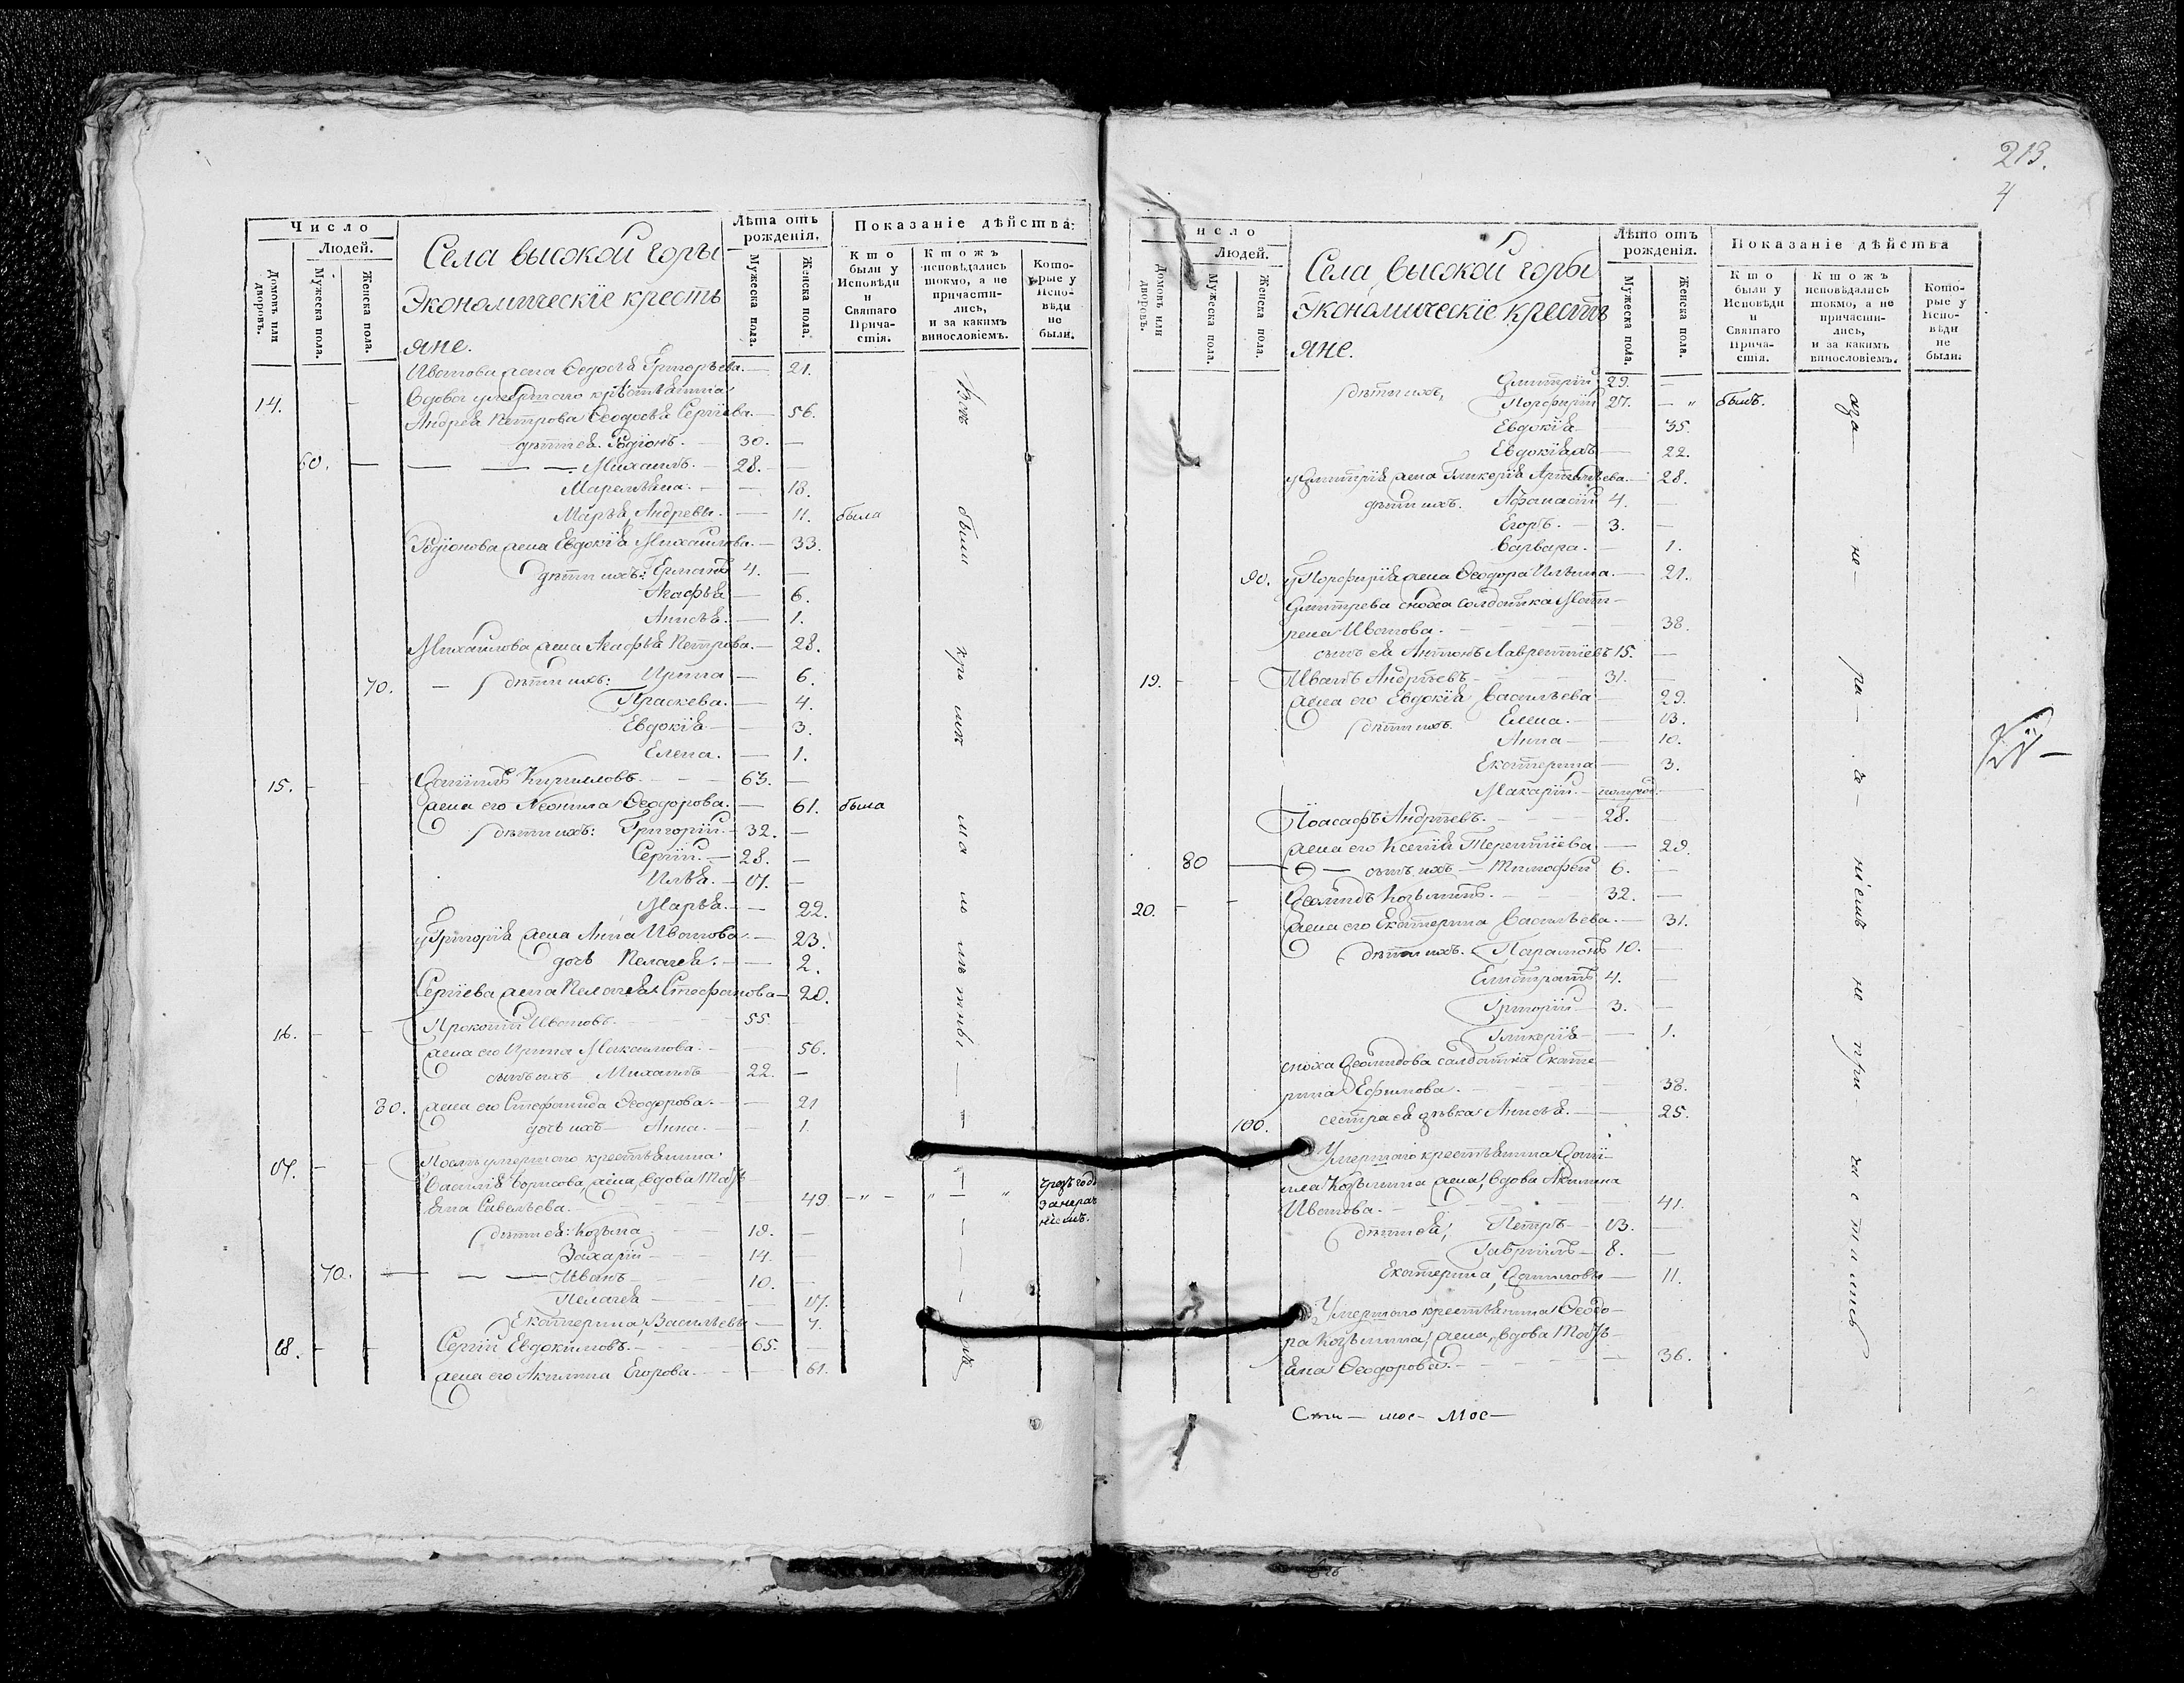 Число
Людей.
Домовъ или дворовъ.
Мужеска пола.
Женска пола.
Села высокой горы
Экономическіе кресть
яне.
Лѣта отъ рожденія.
Мужеска пола.
Женска пола.
Показаніе дѣйства:
Кто были у Исповѣди и Святаго Причастія.
Ктожъ исповѣдались токмо, а не причастились, и за какимъ винословіемъ.
Которые у Исповѣди не были.
Иванова жена Федосья Григорьева. — 21.
14. Вдова умершаго крестьянина
Андрея Петрова Феодосья Сергіева. — 56.
дѣти ея. Родіонъ. — 30. —
60. — Михаилъ. — 28. —
— 18.
Марья Андреевы. — 11. была
Родіонова жена Евдокія Михайлова. — 33.
дѣти ихъ: 4. —
Агафья — 6.
Анисья. — 1.
Михайлова жена Агафья Петрова. — 28.
70. — дѣти ихъ: Ирина — 6.
Праскева. — 4.
Евдокія — 3.
Елена. — 1.
15. Даніилъ Кирилловъ. — 63. —
жена его Неонила Феодорова. — 61. была
дѣти ихъ: Григорій. — 32. —
Сергій. — 28. —
Илья. — 17. —
Марья. — 22.
у Григорія жена Анна Иванова. — 23.
дочь Пелагея. — 2.
Сергіева жена Пелагея Стефанова — 20.
16. Прокопій Ивановъ. — 55
жена его Ирина Максимова. — 56.
сынъ ихъ Михаилъ — 22. —
80. жена его Степанида Феодорова. — 21
дочь ихъ — Анна. — 1.
17. Послѣ умершаго крестьянина
Василія Борисова, жена, вдова Тать
яна Савельева. — 49.
дѣти ея: Козьма — 19. —
Захарій — 14. —
70. — Иванъ — 10. —
Пелагея — 17.
Екатерина Васильевы — 7.
18. Сергій Евдокимовъ. — 65. —
жена его Акилина Егорова. — 61.
213.
4
исло
Людей.
Домовъ или дворовъ.
Мужеска пола.
Женска пола.
Села высокой горы
Экономическіе кресть
яне.
Лѣто отъ рожденія.
Мужеска пола.
Женска пола.
Показаніе дѣйства
Кто были у Исповѣди и Святаго Причастія.
Ктожъ исповѣдались токмо, а не причастились, и за какимъ винословіемъ.
Которые у Исповѣди не были.
дѣти ихъ, Дмитрій 29. —
Порфирій 27. — „ былъ.
Евдокія — 35.
22.
у Дмитрія жена Гликерія — 28.
дѣти ихъ. Афанасій 4. —
Егоръ. — 3. —
Варвара. — 1.
90. у Порфирія жена Феодора Ильина. — 21.
Дмитрева сноха солдатка Мат-
рена Иванова. — 38.
сынъ ея Антонъ Лаврентіевъ 15. —
19. Иванъ Андреевъ — 31. —
жена его Евдокія Васильева — 29.
дѣти ихъ. Елена. — 13.
Анна — 10.
Екатерина — 3.
Макарій. —
Іоасафъ Андреевъ. — 28. —
жена его Ксенія Терентіева — 29.
80 — сынъ ихъ — Тимофей 6. —
20. Козьминъ. — 32. —
жена его Екатерина Васильева. — 31.
дѣти ихъ. Парамонъ 10. —
4. —
Григорій — 3. —
Гликерія — 1.
сноха салдатка Екате
рина Ефимова. — 38.
100. сестра ея дѣвка Анисья. — 25.
Умершаго крестьянина Дані-
ила Козьмина жена, вдова Акилина
Иванова. — 41.
дѣти ея, Петръ — 13. —
Гавріилъ — 8. —
Екатерина, Даниловы — 11.
Умершаго крестьянина Феодо-
ра Козьмина, жена, вдова Тать-
яна Феодорова. — 36.